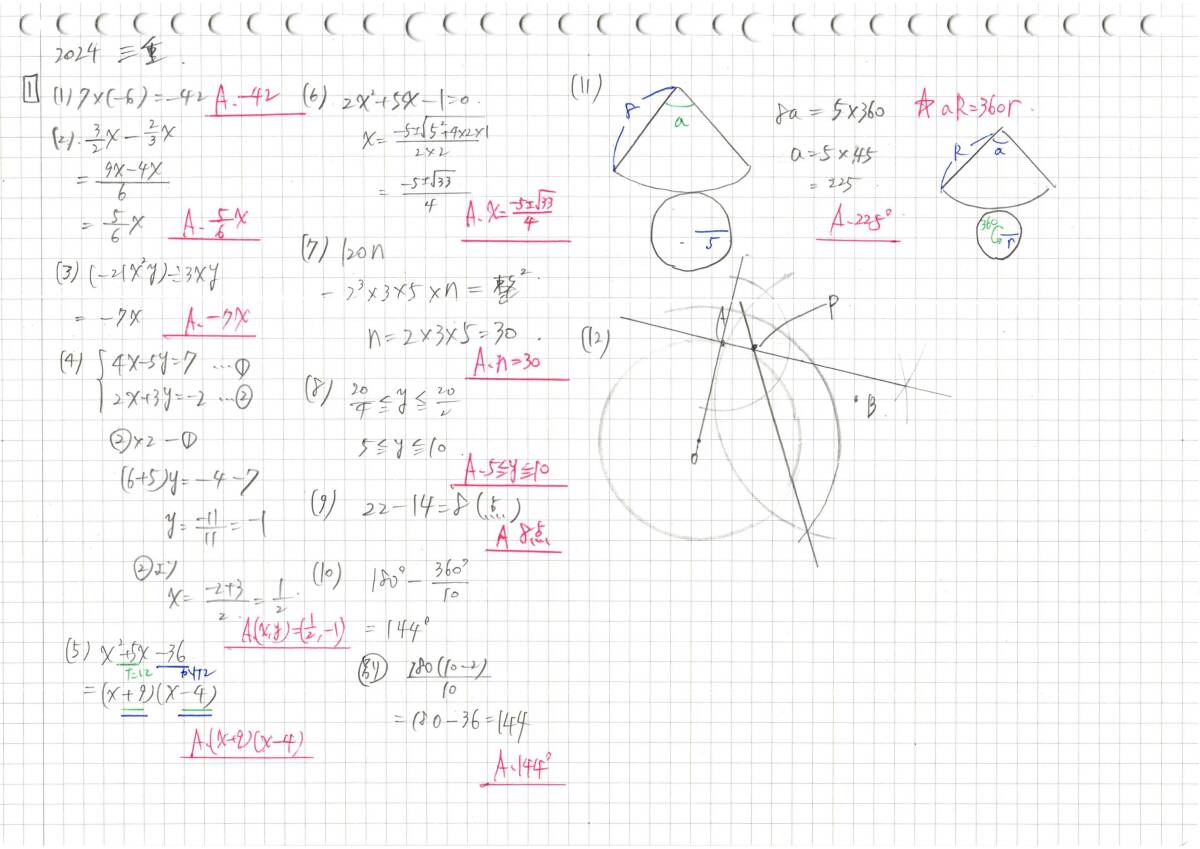 2024 三重.
1
(1) 7×(-6)=-42 A. -42
(2). 3/2x - 2/3x
= (9x-4x)/6
= 5/6x A. 5/6x
(3) (-21x²y)÷3xy
= -7x A. -7x
(4) { 4x-5y=7 …①
2x+3y=-2 …②
②×2-①
(6+5)y=-4-7
y=-11/11=-1
②より
x=(-2+3)/2=1/2.
A.(x,y)=(1/2,-1)
(5) x²+5x-36
たして かけて
=(x+9)(x-4)
A.(x+9)(x-4)
(6) 2x²+5x-1=0.
x=(-5±√(5²+4×2×1))/(2×2)
=(-5±√33)/4
A. x=(-5±√33)/4
(7) 120n
=2³×3×5×n=整².
n=2×3×5=30.
A. n=30
(8) 20/4≦y≦20/2
5≦y≦10.
A. 5≦y≦10
(9) 22-14=8(点)
A 8点
(10) 180°-360°/10
=144°
別 180(10-2)/10
=180-36=144
A. 144°
(11)
8
a
5
8a=5×360
a=5×45
=225
A. 225°
☆ aR=360r.
R
a
360
r
(12)
A
P
B
O